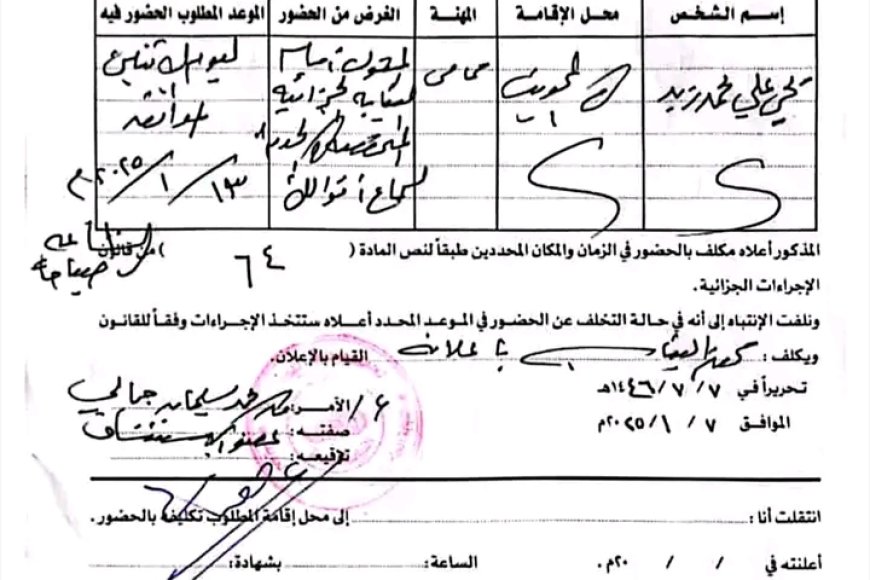 إسم الشخص محل الإقامة المهنة الغرض من الحضور الموعد المطلوب الحضور فيه
علي محمد زيد المحويت محامي المثول أمام ليوم الاثنين
النيابة الجزائية الموافق
١٣ / ١ / ٢٠٢٥م
لسماع أقوالك
الساعة
المذكور أعلاه مكلف بالحضور في الزمان والمكان المحددين طبقاً لنص المادة ( ٦٤ ) من قانون
الإجراءات الجزائية.
ونلفت الإنتباه إلى أنه في حالة التخلف عن الحضور في الموعد المحدد أعلاه ستتخذ الإجراءات وفقاً للقانون
ويكلف : بإعلانه القيام بالإعلان.
تحريراً في ٧ / ٧ / ١٤٤٦هـ
الآمر: محمد سليمان جمالي
الموافق ٧ / ١ / ٢٠٢٥م
صفته: عضو
توقيعه:
انتقلت أنا : إلى محل إقامة المطلوب تكليفه بالحضور.
أعلنته في / / ٢٠م. الساعة: بشهادة: